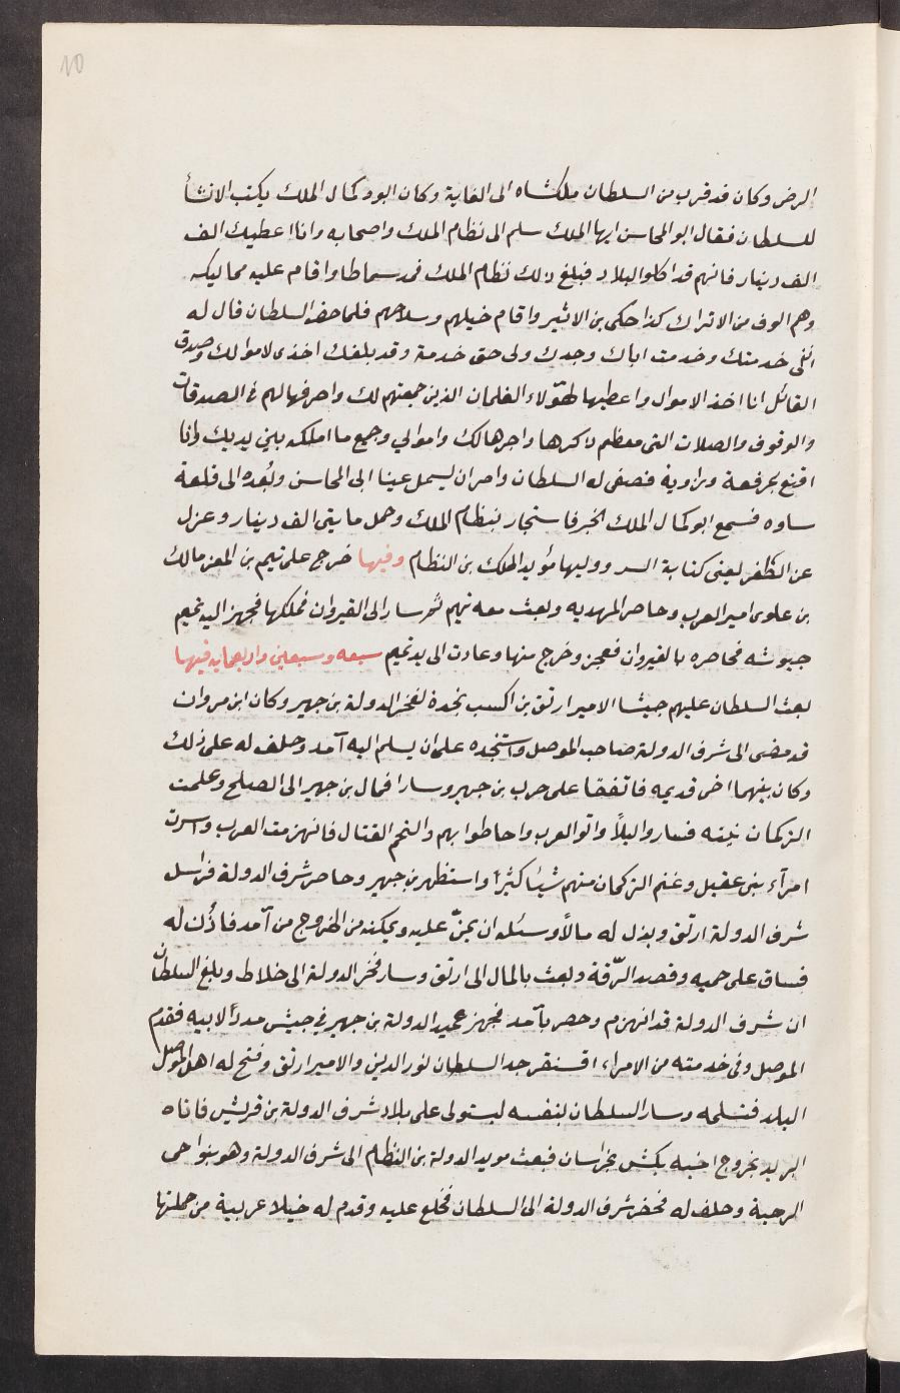 10
الرضى وكان قد قرب من السلطان ملكشاه الى الغاية وكان ابوه كمال الملك يكتب الانشأ
للسلطان فقال ابو المحاسن ايها الملك سلم الى نظام الملك واصحابه وانا اعطيك الف
الف دينار فانهم قد اكلوا البلاد فبلغ ذلك نظام الملك فمد سماطا واقام عليه مماليكه
وهم الوف من الاتراك كذا حكى بن الاثير واقام خيلهم وسلاحهم فلما حضر السلطان قال له
اننى خدمتك وخدمت اباك وجدك ولى حق خدمة وقد بلغك اخذى لاموالك وصدق
القائل انا اخذ الاموال واعطيها لهؤلاء الغلمان الذين جمعتهم لك واصرفها لهم فى الصدقات
والوقوف والصلات التى معظم ذكرها واجرها لك واموالي وجميع ما املكه بين يديك وانا
اقنع بمرقعة وزاوية فصفى له السلطان وامر ان يسمل عينا ابى المحاسن وبُعده الى قلعة
ساوه فسمع ابوه كمال الملك الخبر فاستجار بنظام الملك وحمل مايتى الف دينار وعزل
عن الطغر يعنى كتابة السر ووليها مؤيد الملك بن النظام وفيها خرج على تميم بن المعز مالك
بن علوى امير العرب وحاصر المهديه وبعث معه تميم ثم سار الى القيروان فملكها فجهز اليه تميم
جيوشه فحاصره بالقيروان فعجز وخرج منها وعادت الى يد تميم سبعه وسبعين واربعمايه فيها
بعث السلطان عليهم جيشا الامير ارتق بن اكسب نجدة لفخر الدولة بن جهير وكان ابن مروان
قد مضى الى شرف الدولة صاحب الموصل واستنجده على ان يسلم اليه آمد وحلف له على ذلك
وكان بينهما اخر قديمه فاتفقا على حرب بن جهير وسارا فمال بن جهير الى الصلح وعلمت
التركمان نيته فساروا ليلاً واتوا العرب واحاطوا بهم والتحم القتال فانهزمت العرب واسرت
امرآء بنى عقيل وغنم التركمان منهم شيئا كثيرًا واستظهر بن جهير وحاصر شرف الدولة فراسل
شرف الدولة ارتق وبذل له مالاً وسئله ان يمنّ عليه ويمكنه من الخروج من آمد فاذُن له
فساق على حميه وقصد الرّقة وبعث بالمال الى ارتق وسار فخر الدولة الى خلاط وبلغ السلطان
ان شرف الدولة قد انهزم وحصر بآمد فجهز عميد الدولة بن جهير فى جيش مددًا لابيه فقدم
الموصل وفى خدمته من الامراء اقسنقر جد السلطان نور الدين والامير ارتق وفتح له اهل الموصل
البلد فتسلمه وسار السلطان بنفسه ليستولى على بلاد شرف الدولة بن قريش فاتاه
البريد بخروج اخيه بكش بخراسان فبعث مويد الدولة بن النظام الى شرف الدولة وهو بنواحى
الرحبة وحلف له فحضر شرف الدولة الى السلطان فخلع عليه وقدم له خيلا عربية من جملتها